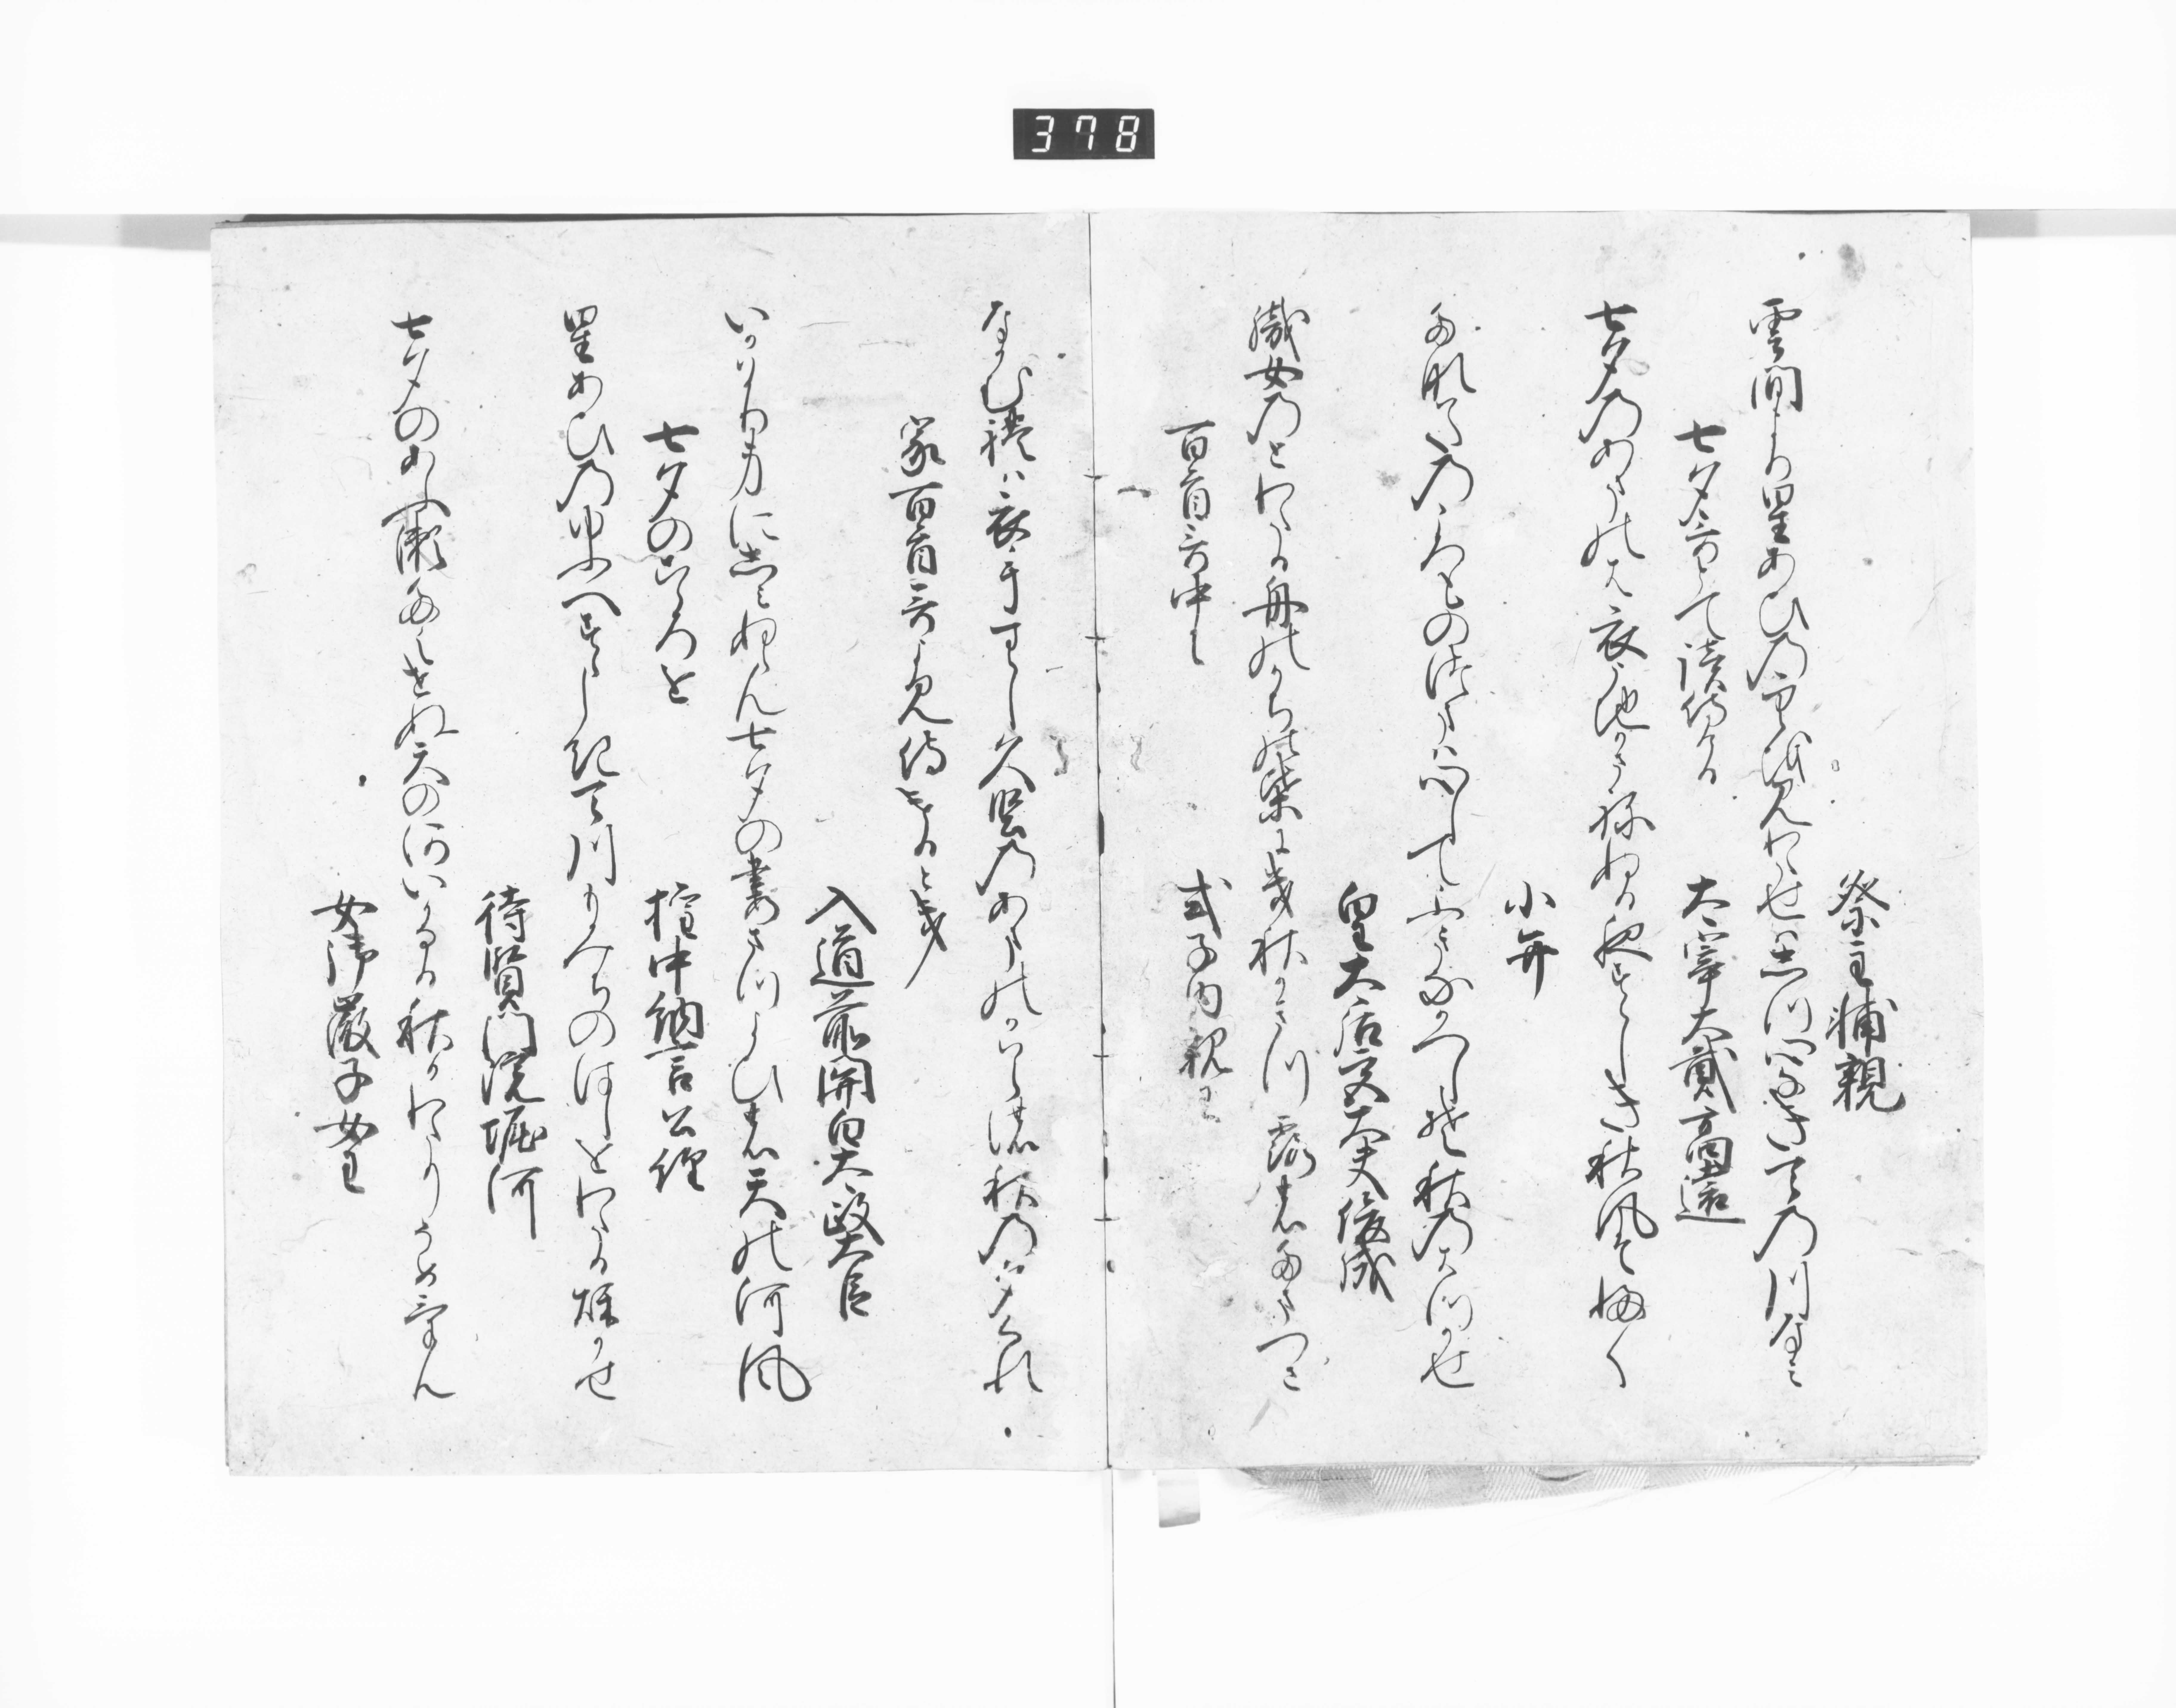 378
祭主輔親
雲間より星あひの空を見わたせはしつ心なきあまの川なみ
七夕哥とて読侍ける
大宰大貳高遠
七夕のあまのは衣うちかさねぬる夜すゝしき秋風そ吹
小弁
たなはたのころものつまは心してふきなかへしそ秋のはつかせ
皇太后宮大夫俊成
織女のとわたる舟のかちの葉に幾秋かきつ露のたまつさ
百首哥中に
式子内親王
なかむれは衣手すゝし久堅のあまのかはらの秋の夕くれ
家百首哥よみ侍ける時
入道前関白太政大臣
いかはかり身にしみぬらん七夕の妻まつよひの天の河風
七夕のこゝろを
権中納言公経
星あひのゆふへすゝしき天川もみちのはしをわたる秋かせ
待賢門院堀河
七夕のあふ瀬たえせぬ天の河いかなる秋かわたりそめけん
女御徽子女王